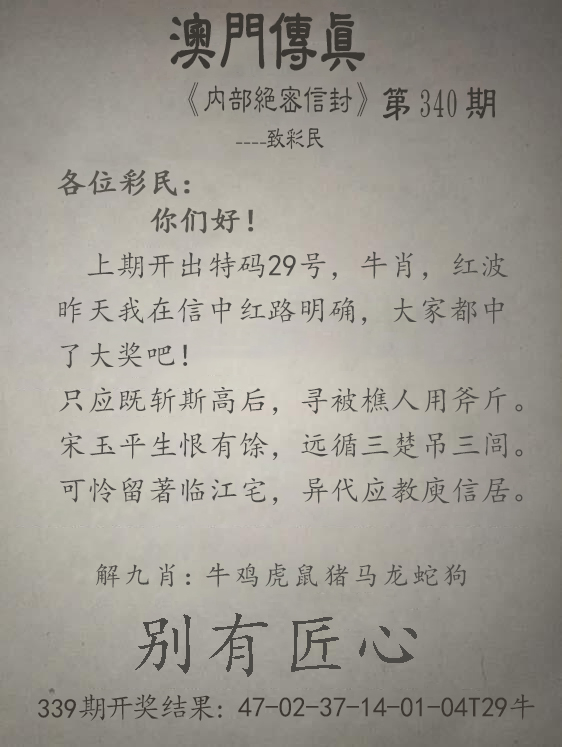 澳門傳眞
《内部絕密信封》第340期
----致彩民
各位彩民：
你们好！
上期开出特码29号，牛肖，红波
昨天我在信中红路明确，大家都中
了大奖吧！
只应既斩斯高后，寻被樵人用斧斤。
宋玉平生恨有馀，远循三楚吊三闾。
可怜留著临江宅，异代应教庾信居。
解九肖：牛鸡虎鼠猪马龙蛇狗
别有匠心
339期开奖结果：47-02-37-14-01-04T29牛